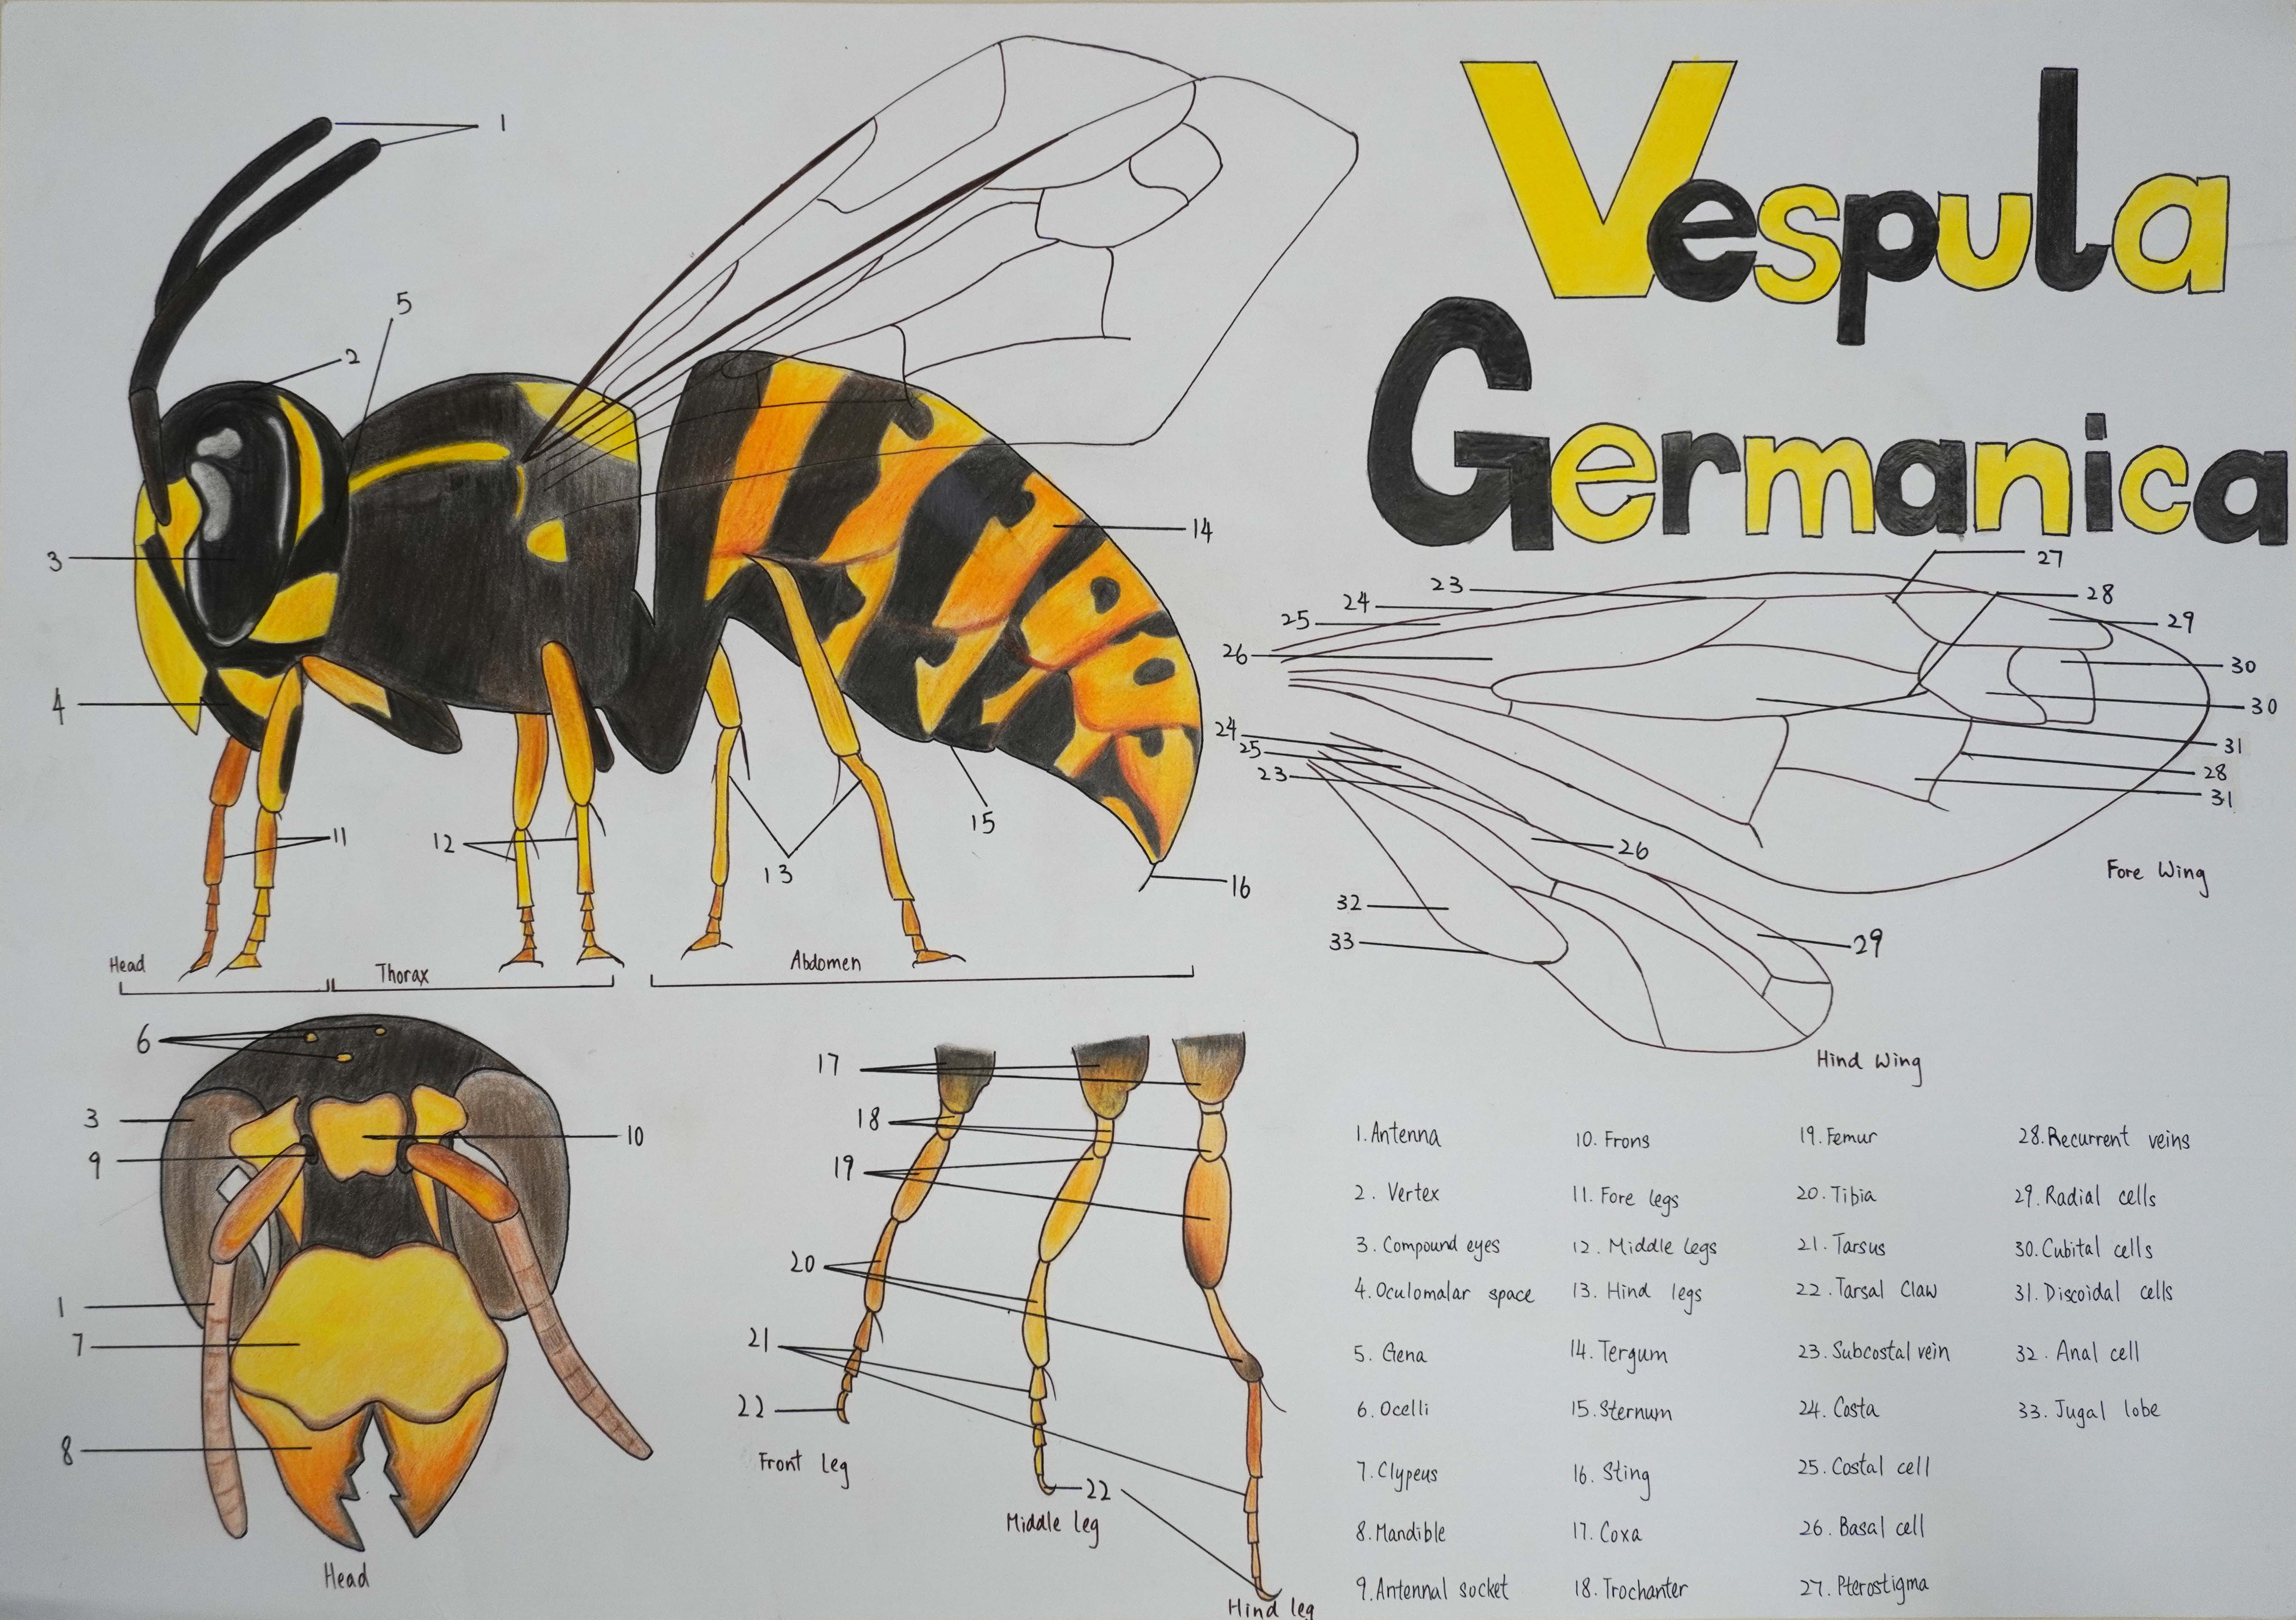 Vespula
Germanica
1
2
5
3
4
14
15
16
11
12
13
Head
Thorax
Abdomen
27
23
24
25
26
28
29
30
30
31
28
31
Fore Wing
24
25
23
26
32
33
29
Hind Wing
6
3
9
10
1
7
8
Head
17
18
19
20
21
22
Front leg
22
Middle leg
Hind leg
1. Antenna
2. Vertex
3. Compound eyes
4. Oculomalar space
5. Gena
6. Ocelli
7. Clypeus
8. Mandible
9. Antennal socket
10. Frons
11. Fore legs
12. Middle legs
13. Hind legs
14. Tergum
15. Sternum
16. Sting
17. Coxa
18. Trochanter
19. Femur
20. Tibia
21. Tarsus
22. Tarsal Claw
23. Subcostal vein
24. Costa
25. Costal cell
26. Basal cell
27. Pterostigma
28. Recurrent veins
29. Radial cells
30. Cubital cells
31. Discoidal cells
32. Anal cell
33. Jugal lobe